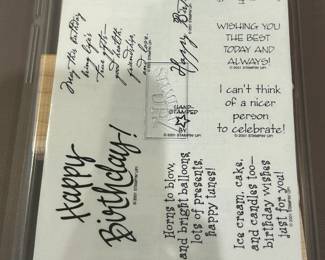 May this birthday
bring life's
true gifts—
good health,
friendship,
and love.
© 2001 STAMPIN' UP!
Happy
© 2001 STAMPIN' UP!
WISHING YOU
THE BEST
TODAY AND
ALWAYS!
© 2001 STAMPIN' UP!
HAND
STAMPED
I can't think
of a nicer
person
to celebrate!
© 2001 STAMPIN' UP!
Happy
Birthday!
© 2001 STAMPIN' UP!
Horns to blow,
and bright balloons,
lots of presents,
happy tunes!
© 2001 STAMPIN' UP!
Ice cream, cake,
and candles too—
birthday wishes
just for you!
© 2001 STAMPIN' UP!